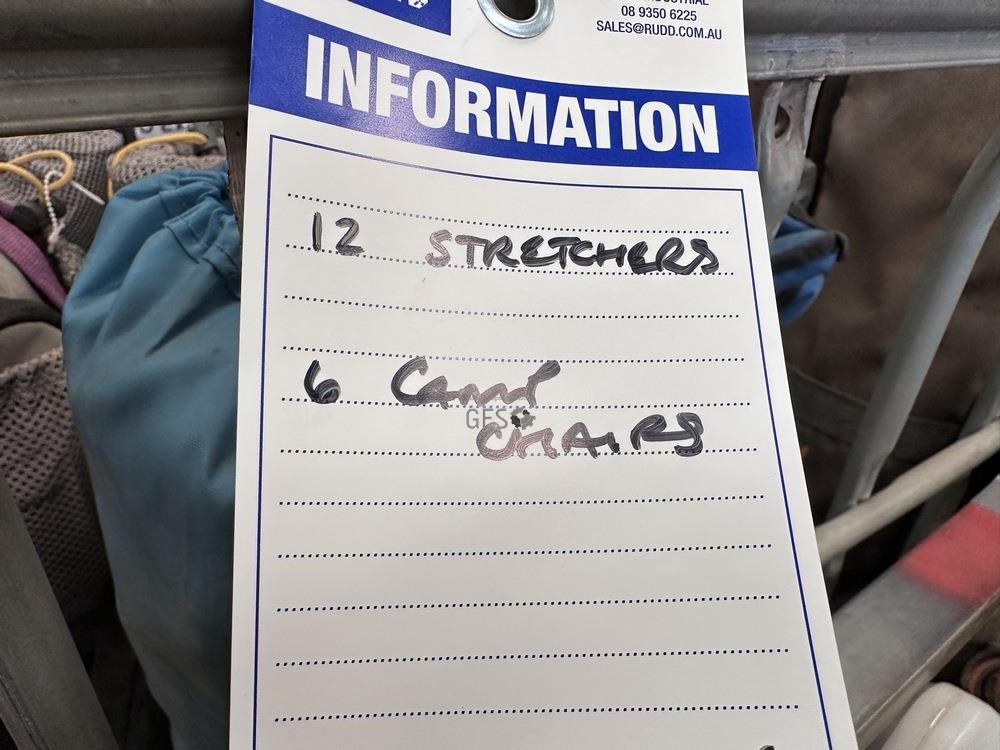 08 9350 6225
SALES@RUDD.COM.AU
INFORMATION
12 STRETCHERS
6 CAMP
GFS
CHAIRS